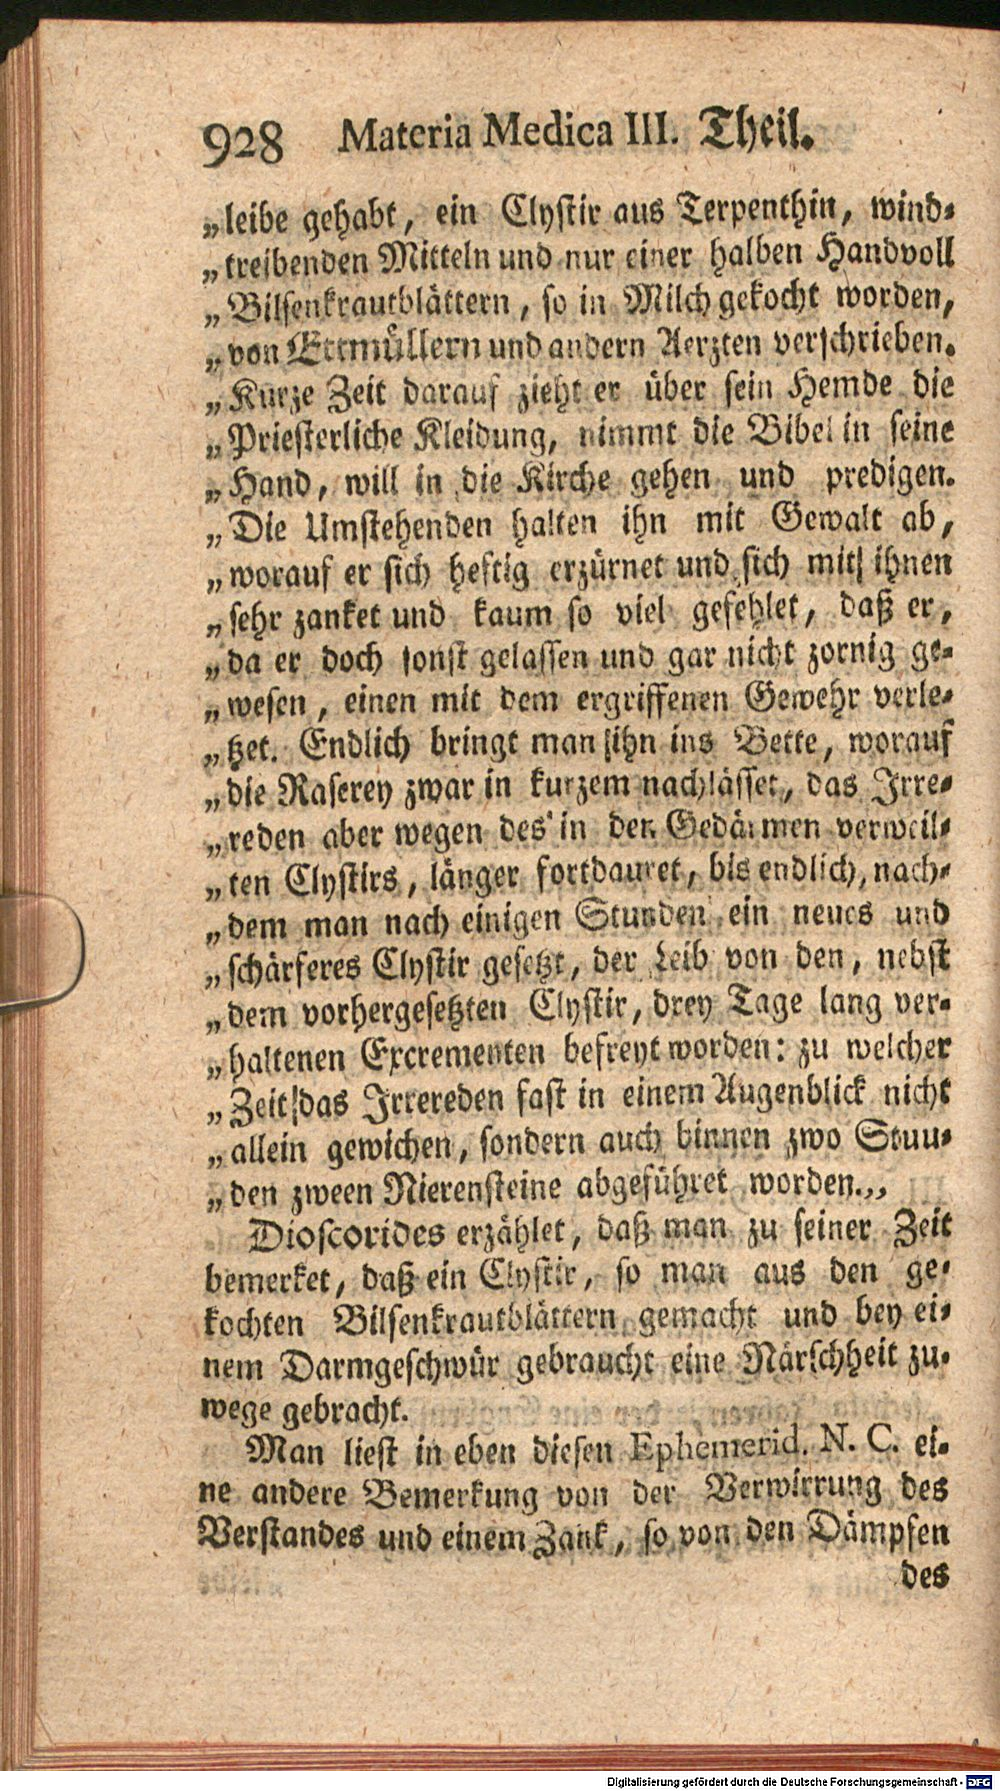 928 Materia Medica III. Theil.
„leibe gehabt, ein Clystir aus Terpenthin, wind-
„treibenden Mitteln und nur einer halben Handvoll
„Bilsenkrautblättern, so in Milch gekocht worden,
„von Ettmüllern und andern Aerzten verschrieben.
„Kurze Zeit darauf zieht er über sein Hemde die
„Priesterliche Kleidung, nimmt die Bibel in seine
„Hand, will in die Kirche gehen und predigen.
„Die Umstehenden halten ihn mit Gewalt ab,
„worauf er sich heftig erzürnet und sich mit ihnen
„sehr zanket und kaum so viel gefehlet, daß er,
„da er doch sonst gelassen und gar nicht zornig ge-
„wesen, einen mit dem ergriffenen Gewehr verle-
„tzet. Endlich bringt man ihn ins Bette, worauf
„die Raserey zwar in kurzem nachlässet, das Irre-
„reden aber wegen des in den Gedärmen verweil-
„ten Clystirs, länger fortdauret, bis endlich, nach-
„dem man nach einigen Stunden ein neues und
„schärferes Clystir gesetzt, der Leib von den, nebst
„dem vorhergesetzten Clystir, drey Tage lang ver-
„haltenen Excrementen befreyt worden: zu welcher
„Zeit das Irrereden fast in einem Augenblick nicht
„allein gewichen, sondern auch binnen zwo Stuu-
„den zween Nierensteine abgeführet worden.„
Dioscorides erzählet, daß man zu seiner Zeit
bemerket, daß ein Clystir, so man aus den ge-
kochten Bilsenkrautblättern gemacht und bey ei-
nem Darmgeschwür gebraucht eine Närschheit zu-
wege gebracht.
Man liest in eben diesen Ephemerid. N. C. ei-
ne andere Bemerkung von der Verwirrung des
Verstandes und einem Zank, so von den Dämpfen
des
Digitalisierung gefördert durch die Deutsche Forschungsgemeinschaft - DFG